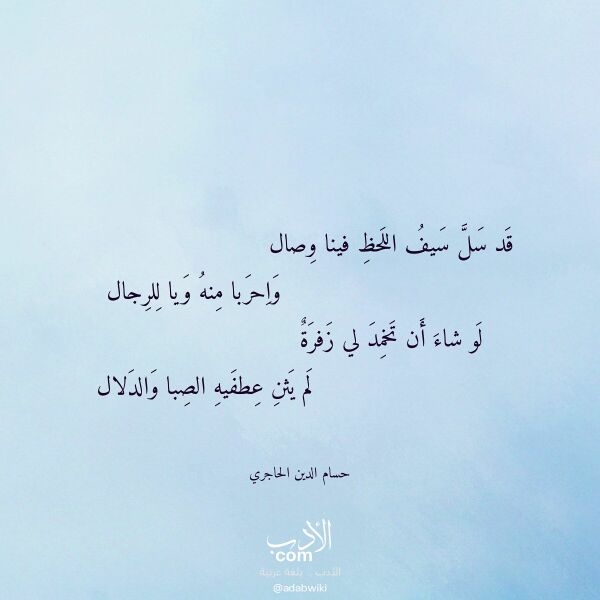 قَد سَلَّ سَيفُ اللَحظِ فينا وِصال
وَاِحرَبا مِنهُ وَيا لِلرِجال
لَو شاءَ أَن تَخمِدَ لي زَفرَةٌ
لَم يَثنِ عِطفَيهِ الصِبا وَالدَلال
حسام الدين الحاجري
الأدب
com
الأدب .. بلغة عربية
@adabwiki